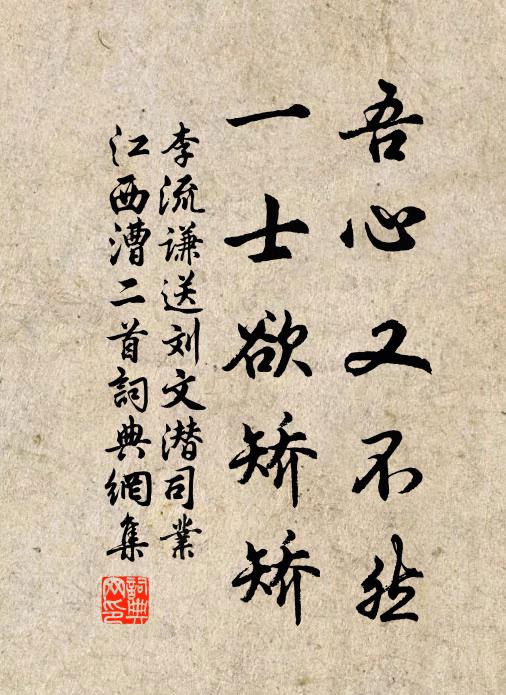 吾心又不然
一士欲矫矫
李流谦送刘文潜司業
江西漕二首詞典網集
詞典网印